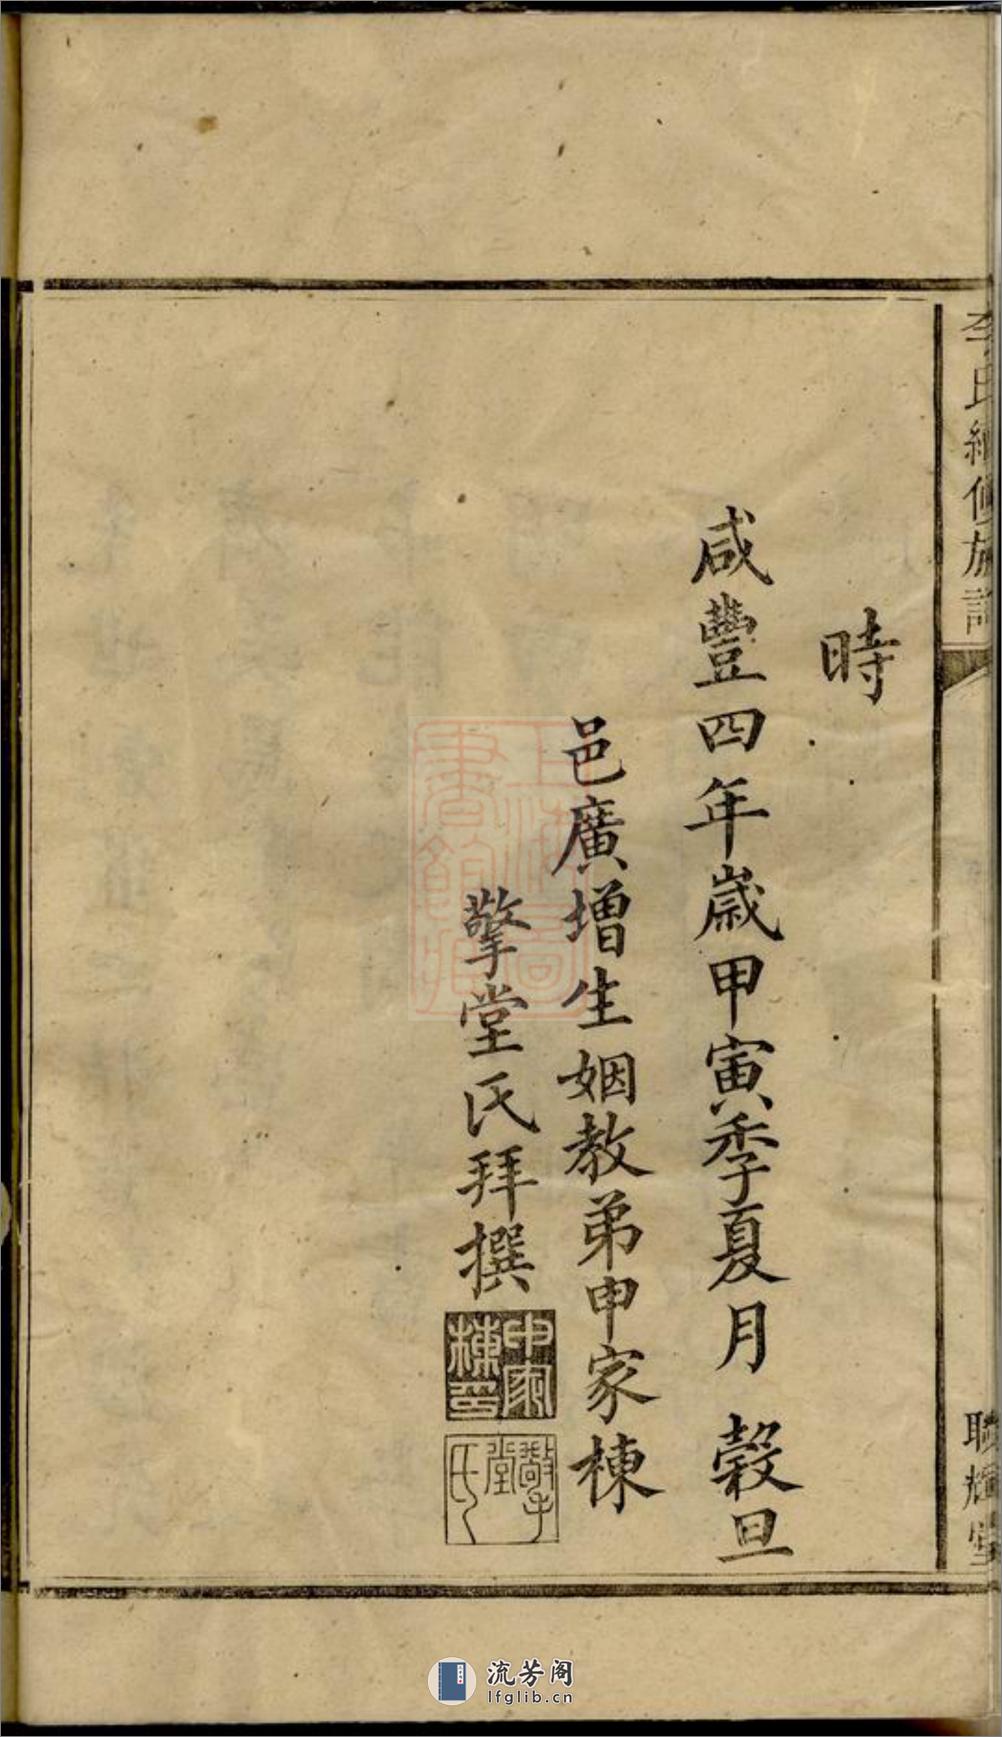 李氏續修族譜
聯輝堂
時
咸豐四年歲甲寅季夏月 穀旦
邑廣增生姻教弟申家棟
擎堂氏拜撰
申家棟印
擎堂氏
上海圖書館藏
流芳阁
lfglib.cn